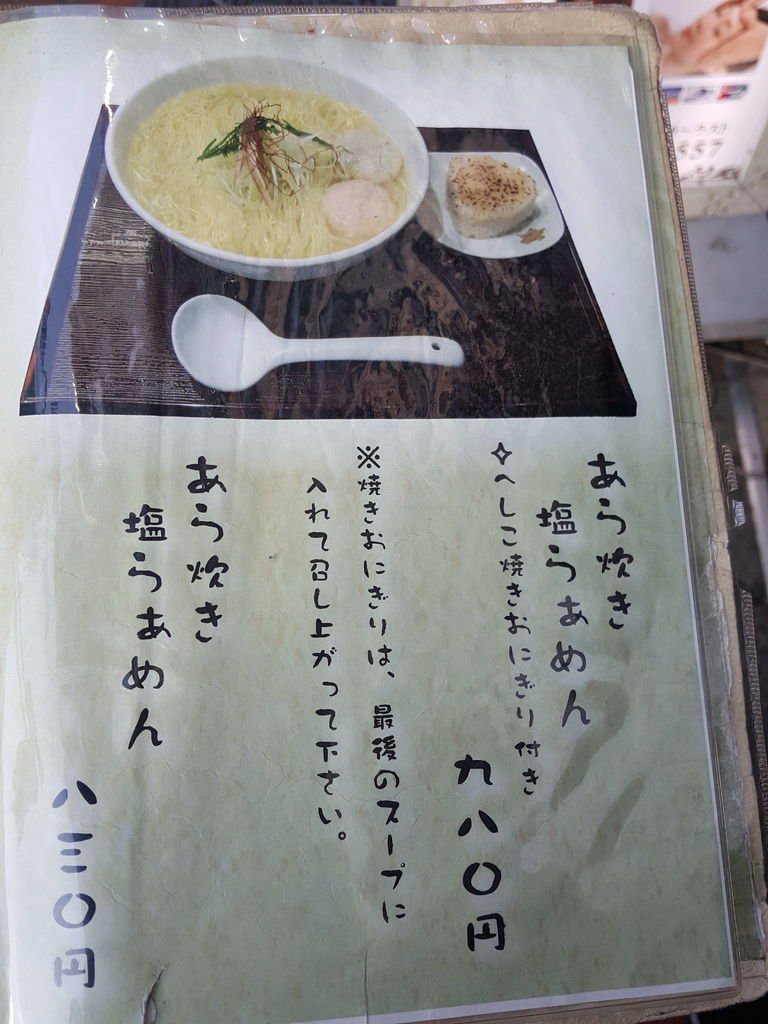 あら炊き
塩らぁめん
✧へしこ焼きおにぎり付き
九八〇円
※焼きおにぎりは、最後のスープに
入れて召し上がって下さい。
あら炊き
塩らぁめん
八三〇円